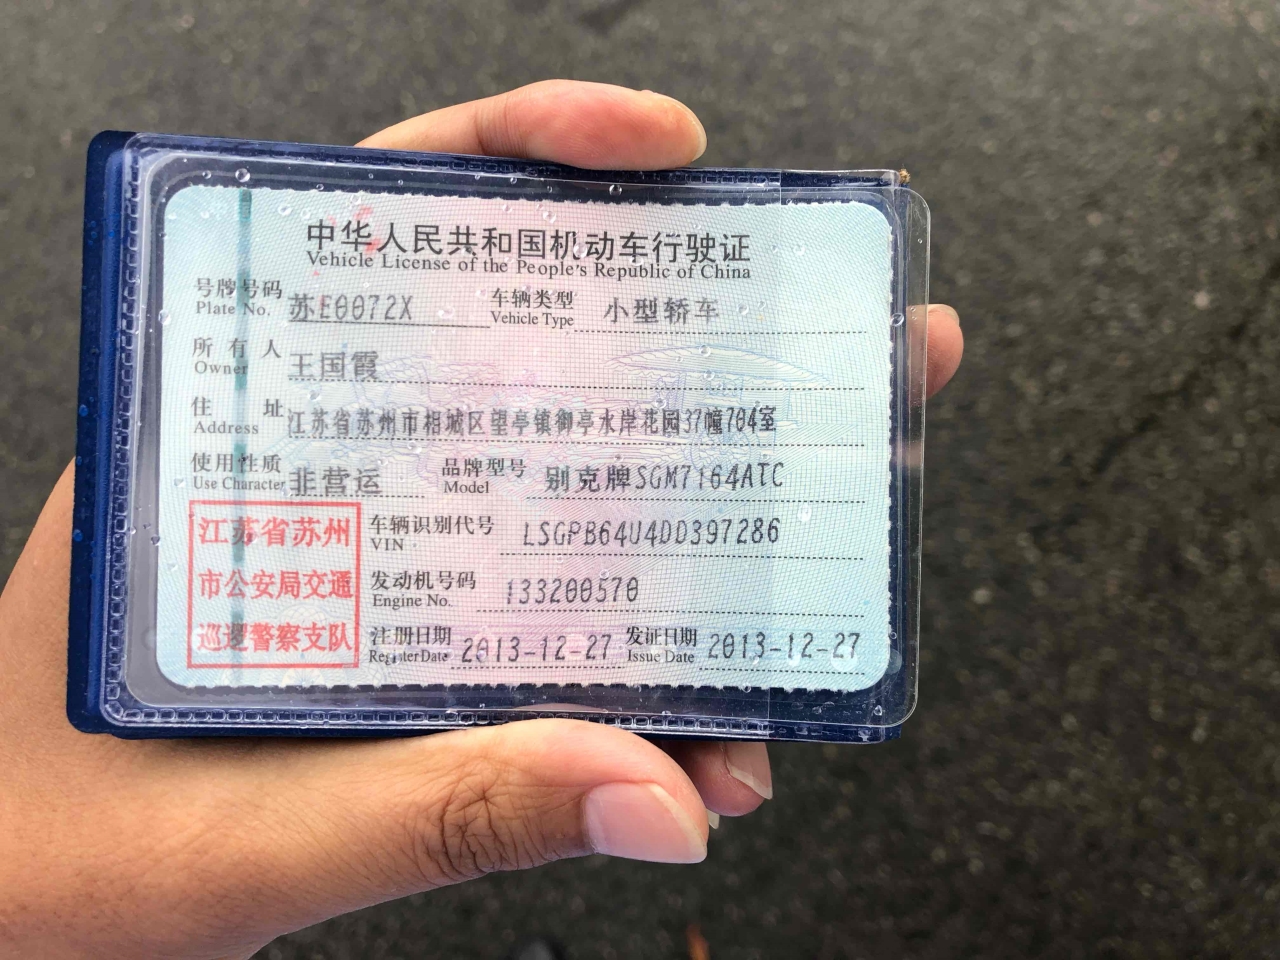 中华人民共和国机动车行驶证
Vehicle License of the People's Republic of China
号牌号码 苏E0072X 车辆类型 小型轿车
Plate No. Vehicle Type
所有人 王国霞
Owner
住址 江苏省苏州市相城区望亭镇御亭水岸花园37幢704室
Address
使用性质 非营运 品牌型号 别克牌SGM7164ATC
Use Character Model
江苏省苏州
市公安局交通
巡逻警察支队
车辆识别代号 LSGPB64U4DD397286
VIN
发动机号码 133200570
Engine No.
注册日期 2013-12-27 发证日期 2013-12-27
Register Date Issue Date